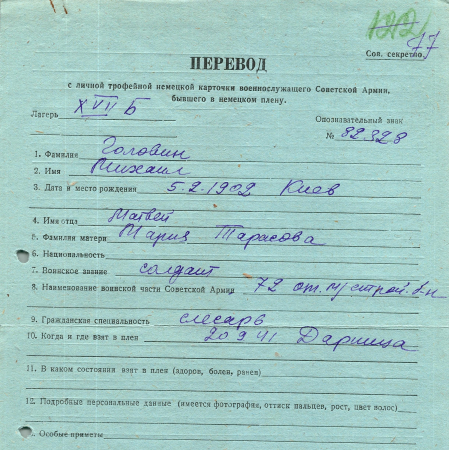 122
77
Сов. секретно.
ПЕРЕВОД
с личной трофейной немецкой карточки военнослужащего Советской Армии,
бывшего в немецком плену.
Лагерь XVII Б
Опознавательный знак
№ 82328
1. Фамилия Головин
2. Имя Михаил
3. Дата и место рождения 5.2.1902 Киов
4. Имя отца Матвей
5. Фамилия матери Мария Тарасова
6. Национальность
7. Воинское звание солдат
8. Наименование воинской части Советской Армии 72 от. м/строй. б-н
9. Гражданская специальность слесарь
10. Когда и где взят в плен 20 9 41 Дарница
11. В каком состоянии взят в плен (здоров, болен, ранен)
12. Подробные персональные данные (имеется фотография, оттиск пальцев, рост, цвет волос)
Особые приметы